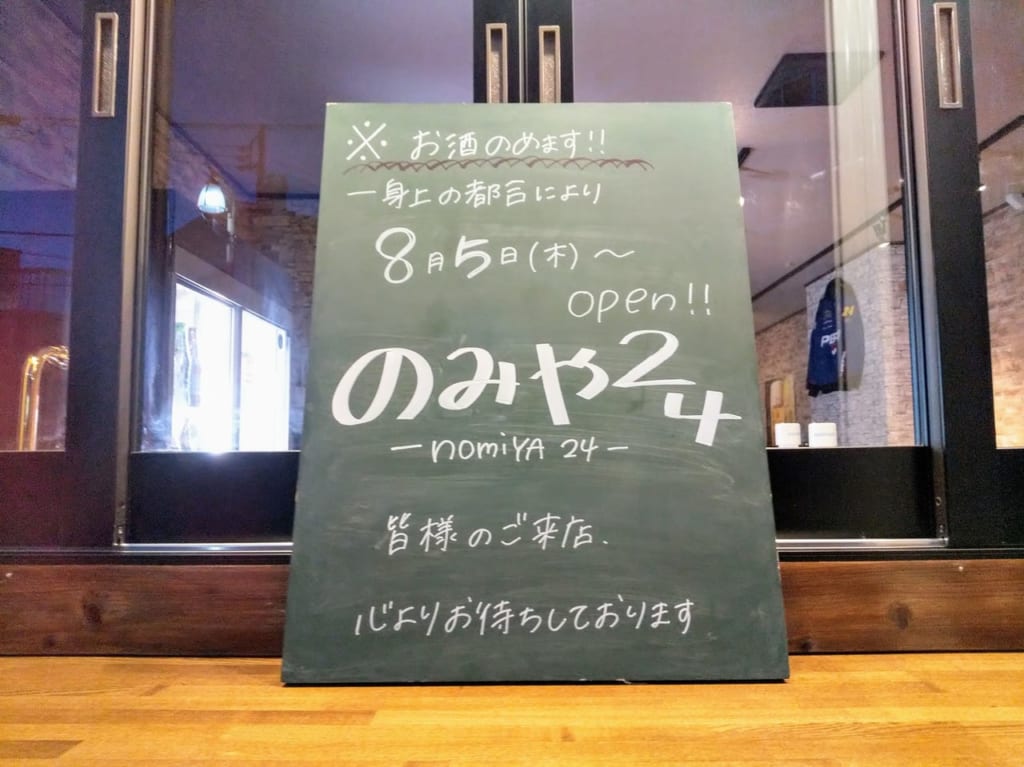 ※ お酒のめます!!
一身上の都合により
8月5日(木)～
open!!
のみや24
－nomiYA 24－
皆様のご来店、
心よりお待ちしております